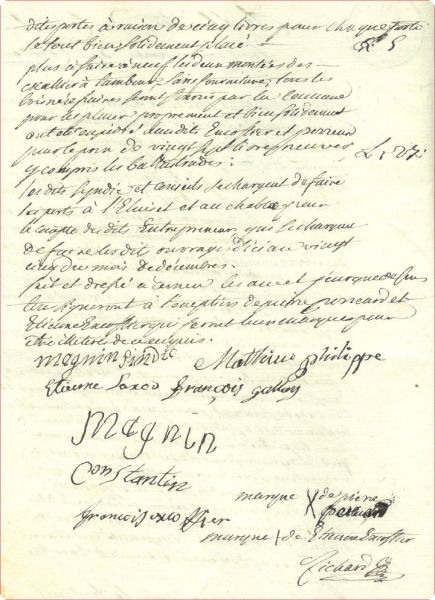 dites portes à raison de cinq livres pour chaque porte
le tout bien solidement placé £: 5
plus à faire à neuf les deux montées des
escallier à tambour sans fourniture, tous les
seront par la commune
pour les placer proprement et bien solidement
dits Encoffrier et
pour le prix de vingt sept livres neuves
y compris les ballustrades: £: 27:
les dits syndic et conseils se chargent de faire
les parts à l'Eluiset et au pour
le compte des dits Entrepreneurs, qui se chargent
de faire les dit ouvrage d'ici au vingt
cinq du mois de décembre.
fait et dressé à les an et jour que de
signeront à l'exception de pierre et
Etienne Encoffrier qui feront leur marque pour
être illitéré de ce enquis.
magnin sindic Mathieu philippe
Etienne françois
Magnin
Constantin
marque X de pierre
françois
marque X de Etienne Encoffrier
Richard